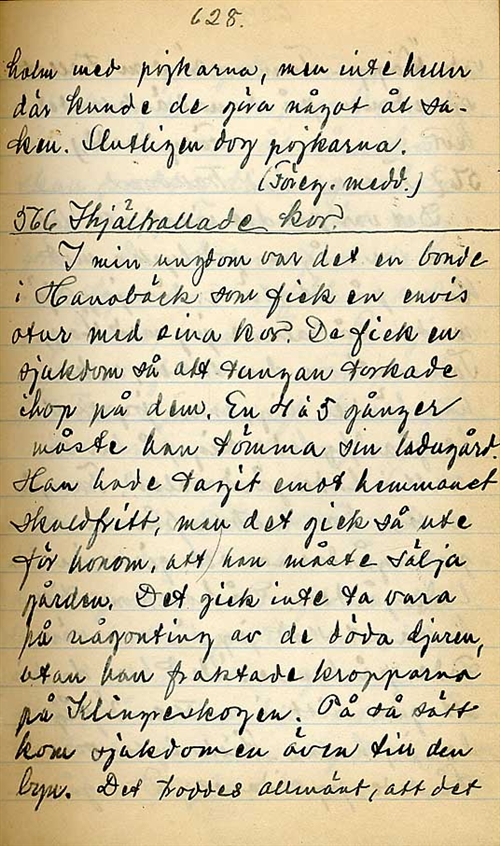 628.
holm med pojkarna, men inte heller
där kunde de göra något åt sa-
ken. Slutligen dog pojkarna.
(Föreg. medd.)
566 Ihjältrallade kor.
I min ungdom var det en bonde
i Hanabäck som fick en envis
otur med sina kor. De fick en
sjukdom så att tungan torkade
ihop på dem. En 4 à 5 gånger
måste han tömma sin ladugård.
Han hade tagit emot hemmanet
skuldfritt, men det gick så ute
för honom, att han måste sälja
gården. Det gick inte ta vara
på någonting av de döda djuren,
utan han fraktade kropparna
på Klingreskogen. På så sätt
kom sjukdomen även till den
byn. Det troddes allmänt, att det